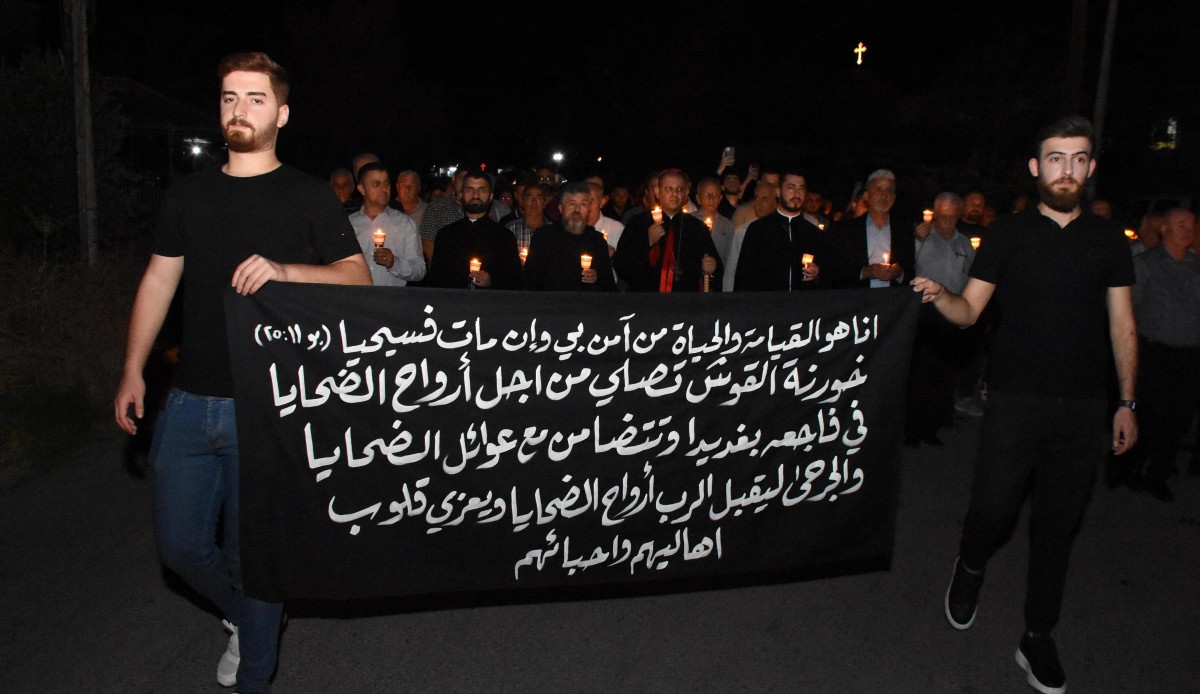 انا هو القيامة والحياة من آمن بي وإن مات فسيحيا (يو ١١:٢٥)
خورنة القوش تصلي من اجل أرواح الضحايا
في فاجعه بغديدا وتتضامن مع عوائل الضحايا
والجرحى ليقبل الرب أرواح الضحايا ويعزي قلوب
اهاليهم واحبائهم